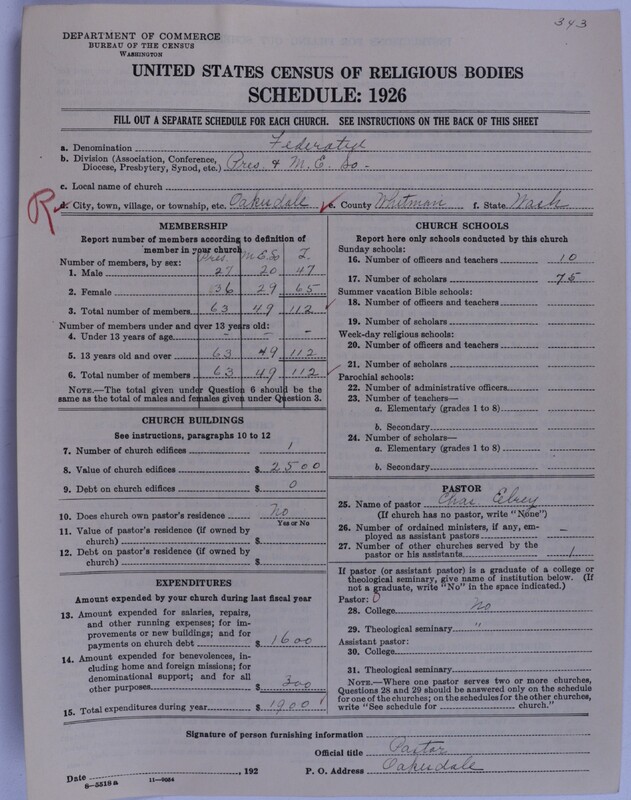 343
DEPARTMENT OF COMMERCE
BUREAU OF THE CENSUS
WASHINGTON
UNITED STATES CENSUS OF RELIGIOUS BODIES
SCHEDULE: 1926
FILL OUT A SEPARATE SCHEDULE FOR EACH CHURCH. SEE INSTRUCTIONS ON THE BACK OF THIS SHEET
a. Denomination Federated
b. Division (Association, Conference, Diocese, Presbytery, Synod, etc.) Pres. & M.E. So -
c. Local name of church
R
d. City, town, village, or township, etc. Oakesdale e. County Whitman f. State Wash
MEMBERSHIP
Report number of members according to definition of member in your church
Pres. M E So T.
Number of members, by sex:
1. Male 27 20 47
2. Female 36 29 65
3. Total number of members 63 49 112
Number of members under and over 13 years old:
4. Under 13 years of age - - -
5. 13 years old and over 63 49 112
6. Total number of members 63 49 112
NOTE.—The total given under Question 6 should be the same as the total of males and females given under Question 3.
CHURCH BUILDINGS
See instructions, paragraphs 10 to 12
7. Number of church edifices 1
8. Value of church edifices $ 2500
9. Debt on church edifices $ 0
10. Does church own pastor's residence? No
Yes or No
11. Value of pastor's residence (if owned by church) $
12. Debt on pastor's residence (if owned by church) $
EXPENDITURES
Amount expended by your church during last fiscal year
13. Amount expended for salaries, repairs, and other running expenses; for improvements or new buildings; and for payments on church debt $ 1600
14. Amount expended for benevolences, including home and foreign missions; for denominational support; and for all other purposes $ 300
15. Total expenditures during year $ 1900
CHURCH SCHOOLS
Report here only schools conducted by this church
Sunday schools:
16. Number of officers and teachers 10
17. Number of scholars 75
Summer vacation Bible schools:
18. Number of officers and teachers
19. Number of scholars
Week-day religious schools:
20. Number of officers and teachers
21. Number of scholars
Parochial schools:
22. Number of administrative officers
23. Number of teachers—
a. Elementary (grades 1 to 8)
b. Secondary
24. Number of scholars—
a. Elementary (grades 1 to 8)
b. Secondary
PASTOR
25. Name of pastor Chas. Elrey
(If church has no pastor, write "None")
26. Number of ordained ministers, if any, employed as assistant pastors -
27. Number of other churches served by the pastor or his assistants 1
If pastor (or assistant pastor) is a graduate of a college or theological seminary, give name of institution below. (If not a graduate, write "No" in the space indicated.)
Pastor: 0
28. College No
29. Theological seminary "
Assistant pastor:
30. College
31. Theological seminary
NOTE.—Where one pastor serves two or more churches, Questions 28 and 29 should be answered only on the schedule for one of the churches; on the schedules for the other churches, write "See schedule for church."
Signature of person furnishing information
Official title Pastor
Date , 192 P. O. Address Oakesdale
8-5518a 11-9034